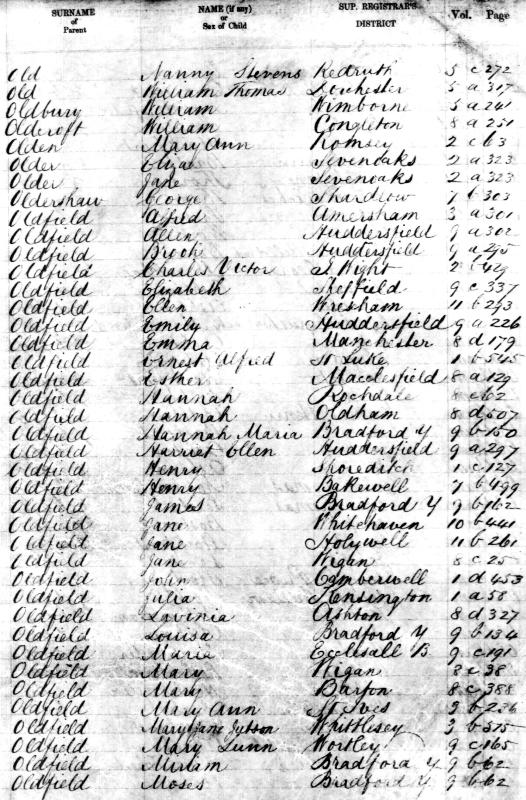 SURNAME of Parent NAME (if any) or Sex of Child SUP. REGISTRAR'S DISTRICT Vol. Page
Old Nanny Stevens Redruth 5 c 272
Old William Thomas Dorchester 5 a 317
Oldbury William Wimborne 5 a 241
Oldcroft William Congleton 8 a 251
Olden Mary Ann Romsey 2 c 63
Older Eliza Sevenoaks 2 a 323
Older Jane Sevenoaks 2 a 323
Oldershaw George Shardlow 7 b 303
Oldfield Alfred Amersham 3 a 301
Oldfield Allen Huddersfield 9 a 302
Oldfield Brook Huddersfield 9 a 295
Oldfield Charles Victor I. Wight 2 b 429
Oldfield Elizabeth Sheffield 9 c 337
Oldfield Ellen Wrexham 11 b 293
Oldfield Emily Huddersfield 9 a 226
Oldfield Emma Manchester 8 d 179
Oldfield Ernest Alfred St Luke 1 b 545
Oldfield Esther Macclesfield 8 a 129
Oldfield Hannah Rochdale 8 c 62
Oldfield Hannah Oldham 8 d 507
Oldfield Hannah Maria Bradford Y 9 b 150
Oldfield Harriet Ellen Huddersfield 9 a 297
Oldfield Henry Shoreditch 1 c 127
Oldfield Henry Bakewell 7 b 499
Oldfield James Bradford Y 9 b 162
Oldfield Jane Whitehaven 10 b 441
Oldfield Jane Holywell 11 b 261
Oldfield Jane Wigan 8 c 25
Oldfield John Camberwell 1 d 453
Oldfield Julia Kensington 1 a 58
Oldfield Lavinia Ashton 8 d 327
Oldfield Louisa Bradford Y 9 b 134
Oldfield Maria Ecclesall B. 9 c 191
Oldfield Mary Wigan 8 c 38
Oldfield Mary Barton 8 c 388
Oldfield Mary Ann St Ives 3 b 236
Oldfield Mary Jane Jutson Whittlesey 3 b 575
Oldfield Mary Lunn Wortley 9 c 165
Oldfield Miriam Bradford Y 9 b 62
Oldfield Moses Bradford Y. 9 b 62